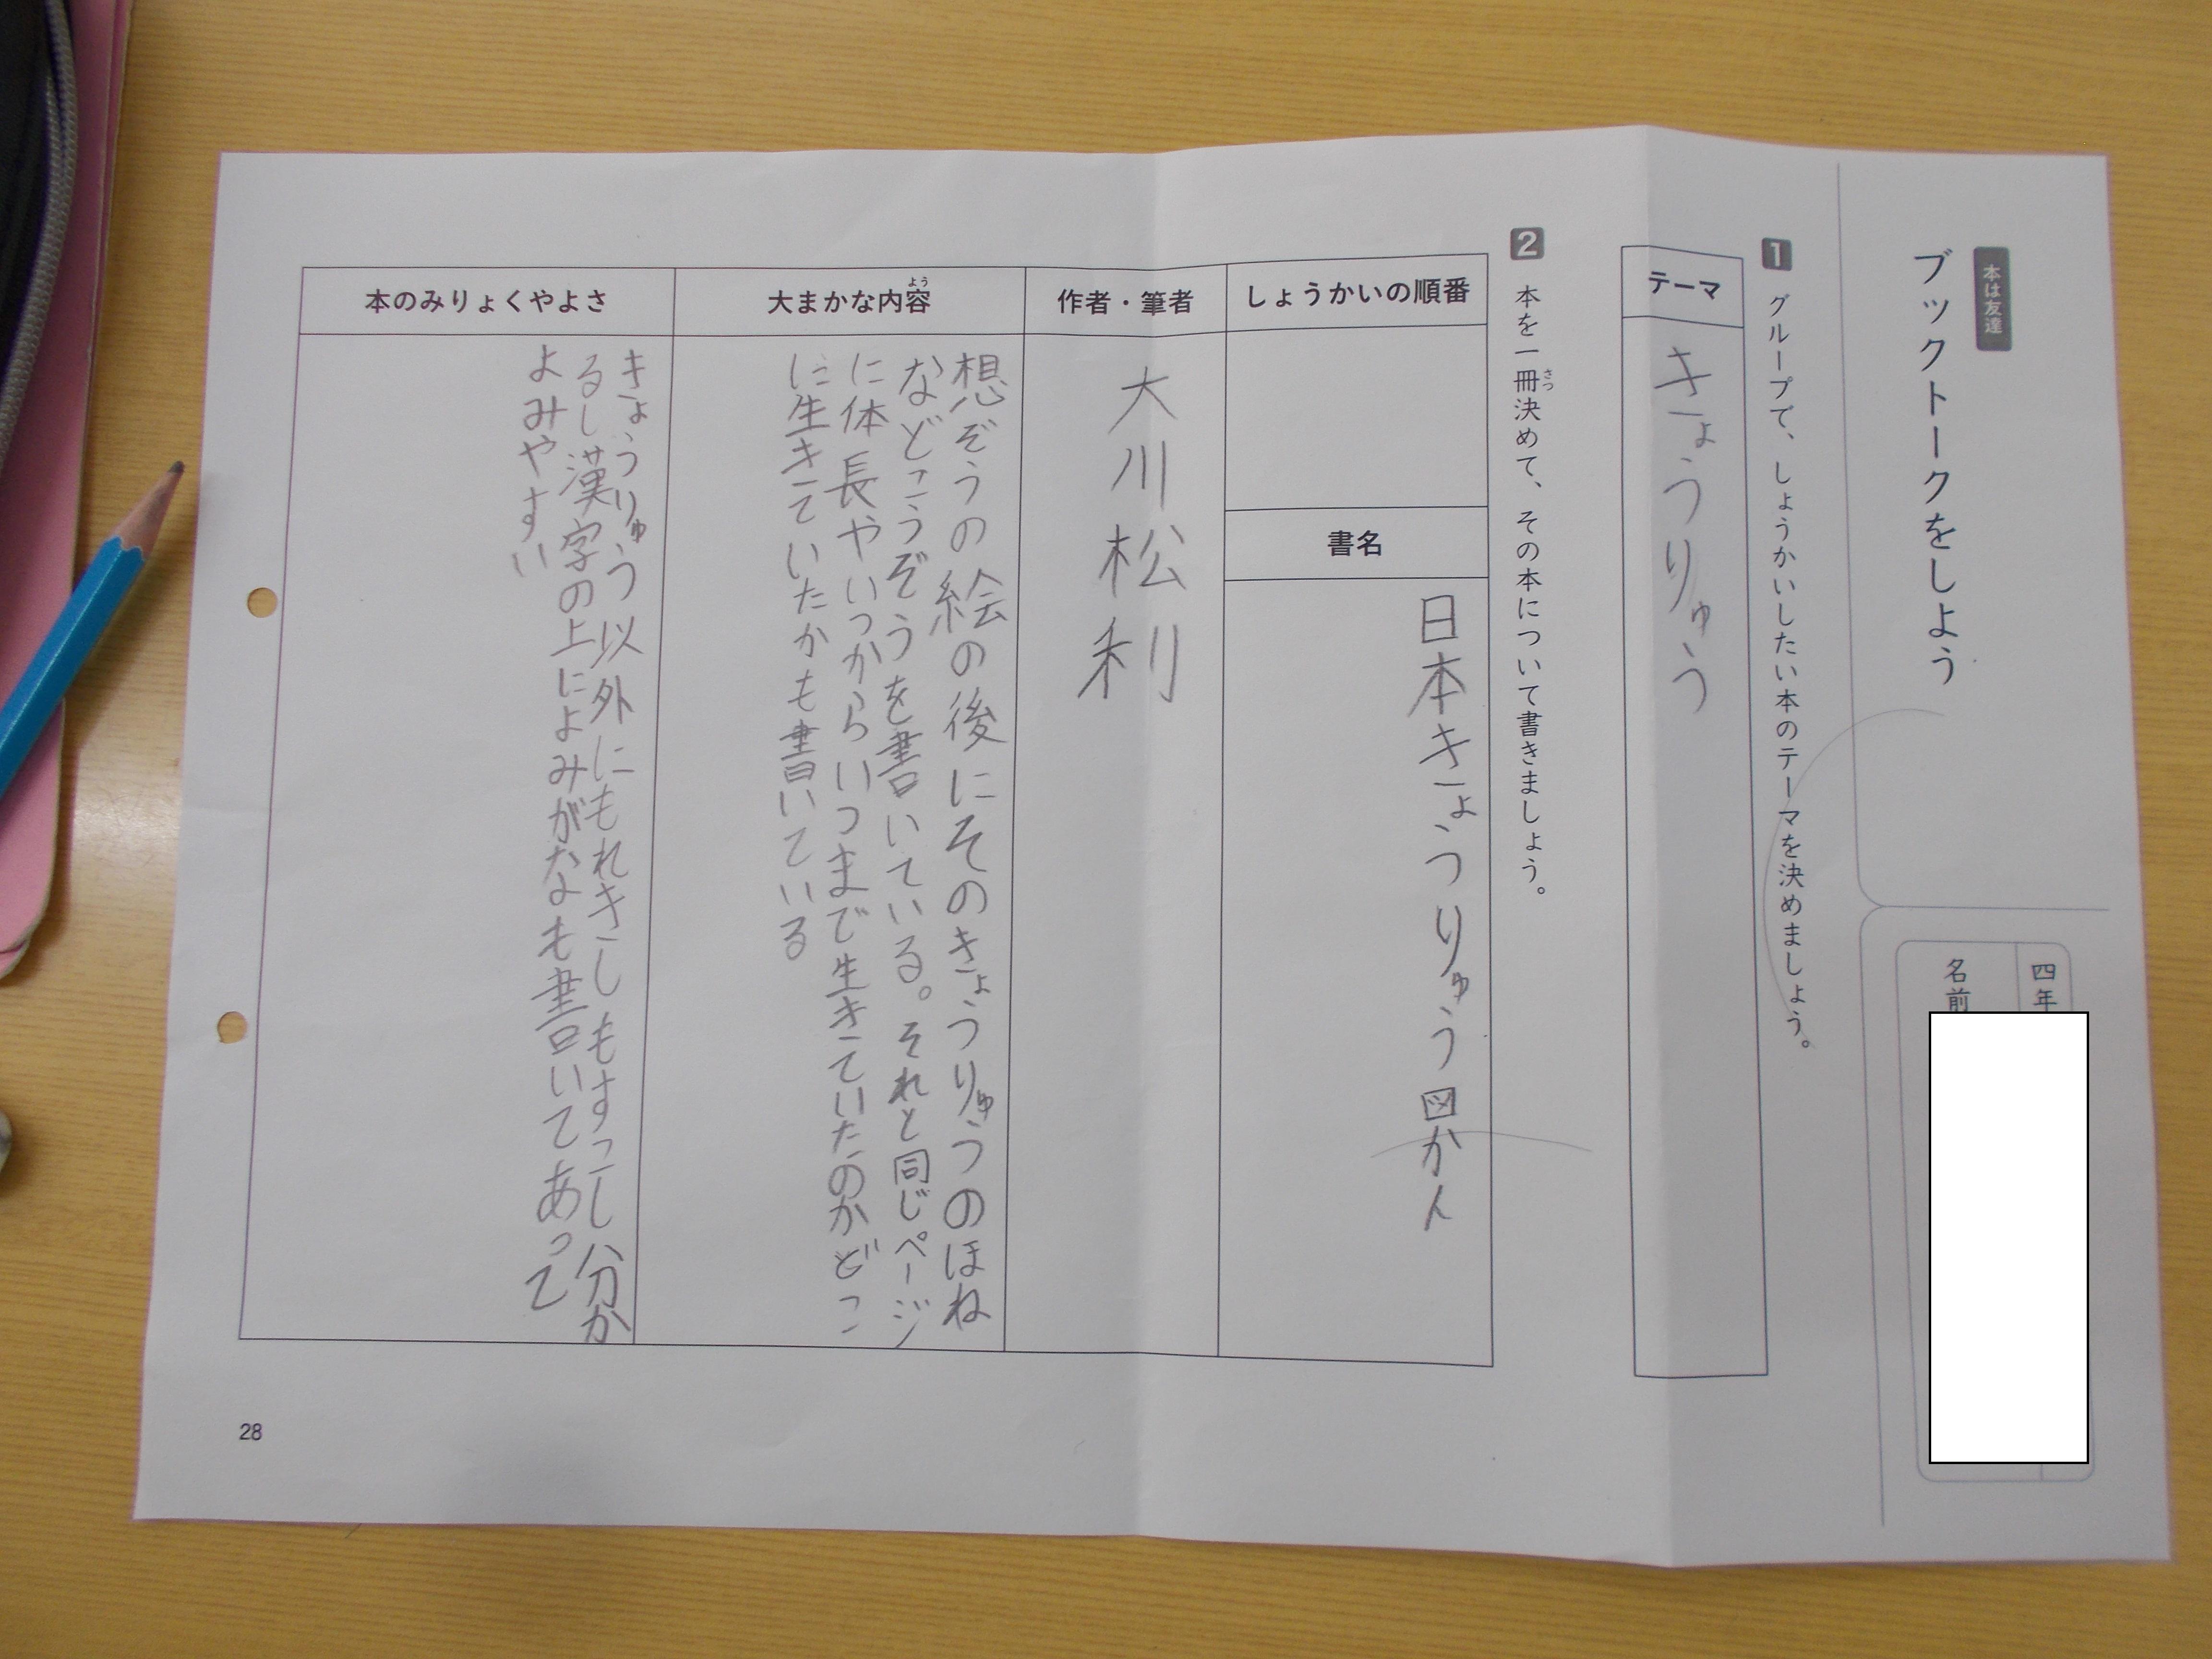 本は友達
ブックトークをしよう
四年
名前
1 グループで、しょうかいしたい本のテーマを決めましょう。
テーマ
きょうりゅう
2 本を一冊決めて、その本について書きましょう。
さつ
しょうかいの順番
書名
日本きょうりゅう図かん
作者・筆者
大川松利
大まかな内容
よう
想ぞうの絵の後にそのきょうりゅうのほね
などこうぞうを書いている。それと同じページ
に体長やいつからいつまで生きていたのかどこ
に生きていたかも書いている
本のみりょくやよさ
きょうりゅう以外にもれきしもすこし分か
るし漢字の上によみがなも書いてあって
よみやすい
28